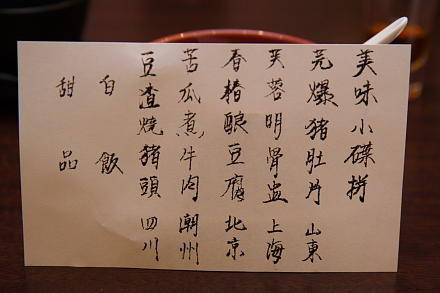 美味小碟拼
芫爆猪肚丹 山東
芙蓉明骨盅 上海
春椿釀豆腐 北京
苦瓜煮牛肉 潮州
豆渣燒豬頭 四川
白飯
甜品